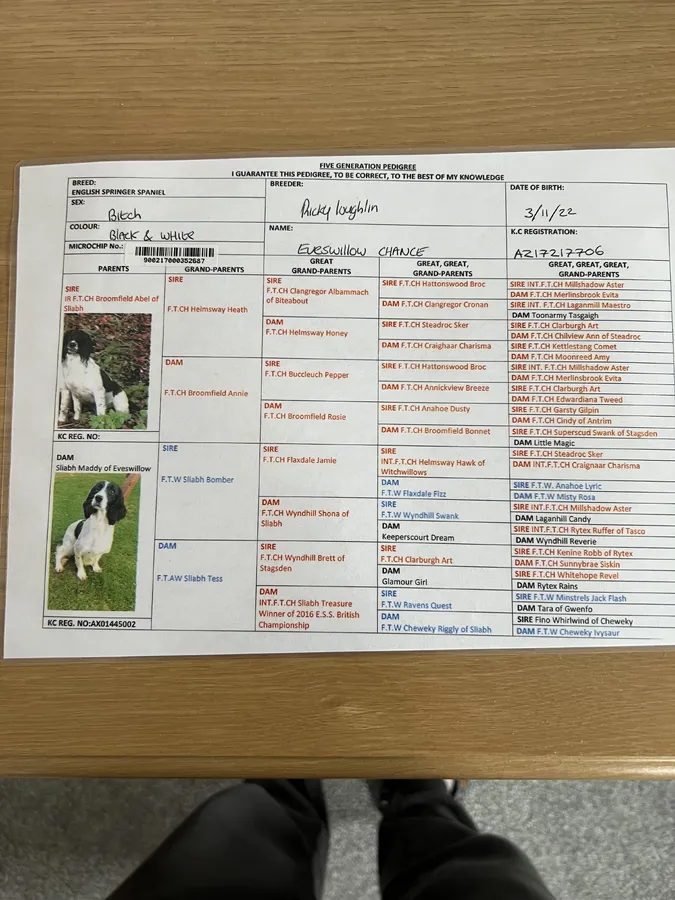 FIVE GENERATION PEDIGREE
I GUARANTEE THIS PEDIGREE, TO BE CORRECT, TO THE BEST OF MY KNOWLEDGE
BREED:
ENGLISH SPRINGER SPANIEL
SEX:
Bitch
COLOUR:
BLACK & WHITE
MICROCHIP No.:
900217000352687
BREEDER:
Ricky loughlin
NAME:
EVESWILLOW CHANCE
DATE OF BIRTH:
3/11/22
K.C REGISTRATION:
AZ17217706
PARENTS
GRAND-PARENTS
GREAT
GRAND-PARENTS
GREAT, GREAT,
GRAND-PARENTS
GREAT, GREAT, GREAT,
GRAND-PARENTS
SIRE
IR F.T.CH Broomfield Abel of
Sliabh
KC REG. NO:
DAM
Sliabh Maddy of Eveswillow
KC REG. NO:AX01445002
SIRE
F.T.CH Helmsway Heath
DAM
F.T.CH Broomfield Annie
SIRE
F.T.W Sliabh Bomber
DAM
F.T.AW Sliabh Tess
SIRE
F.T.CH Clangregor Albammach
of Biteabout
DAM
F.T.CH Helmsway Honey
SIRE
F.T.CH Buccleuch Pepper
DAM
F.T.CH Broomfield Rosie
SIRE
F.T.CH Flaxdale Jamie
DAM
F.T.CH Wyndhill Shona of
Sliabh
SIRE
F.T.CH Wyndhill Brett of
Stagsden
DAM
INT.F.T.CH Sliabh Treasure
Winner of 2016 E.S.S. British
Championship
SIRE F.T.CH Hattonswood Broc
DAM F.T.CH Clangregor Cronan
SIRE F.T.CH Steadroc Sker
DAM F.T.CH Craighaar Charisma
SIRE F.T.CH Hattonswood Broc
DAM F.T.CH Annickview Breeze
SIRE F.T.CH Anahoe Dusty
DAM F.T.CH Broomfield Bonnet
SIRE
INT.F.T.CH Helmsway Hawk of
Witchwillows
DAM
F.T.W Flaxdale Fizz
SIRE
F.T.W Wyndhill Swank
DAM
Keeperscourt Dream
SIRE
F.T.CH Clarburgh Art
DAM
Glamour Girl
SIRE
F.T.W Ravens Quest
DAM
F.T.W Cheweky Riggly of Sliabh
SIRE INT.F.T.CH Millshadow Aster
DAM F.T.CH Merlinsbrook Evita
SIRE INT. F.T.CH Laganmill Maestro
DAM Toonarmy Tasgaigh
SIRE F.T.CH Clarburgh Art
DAM F.T.CH Chilview Ann of Steadroc
SIRE F.T.CH Kettlestang Comet
DAM F.T.CH Moonreed Amy
SIRE INT. F.T.CH Millshadow Aster
DAM F.T.CH Merlinsbrook Evita
SIRE F.T.CH Clarburgh Art
DAM F.T.CH Edwardiana Tweed
SIRE F.T.CH Garsty Gilpin
DAM F.T.CH Cindy of Antrim
SIRE F.T.CH Superscud Swank of Stagsden
DAM Little Magic
SIRE F.T.CH Steadroc Sker
DAM INT.F.T.CH Craignaar Charisma
SIRE F.T.W. Anahoe Lyric
DAM F.T.W Misty Rosa
SIRE INT.F.T.CH Millshadow Aster
DAM Laganhill Candy
SIRE INT.F.T.CH Rytex Ruffer of Tasco
DAM Wyndhill Reverie
SIRE F.T.CH Kenine Robb of Rytex
DAM F.T.CH Sunnybrae Siskin
SIRE F.T.CH Whitehope Revel
DAM Rytex Rains
SIRE F.T.W Minstrels Jack Flash
DAM Tara of Gwenfo
SIRE Fino Whirlwind of Cheweky
DAM F.T.W Cheweky Ivysaur